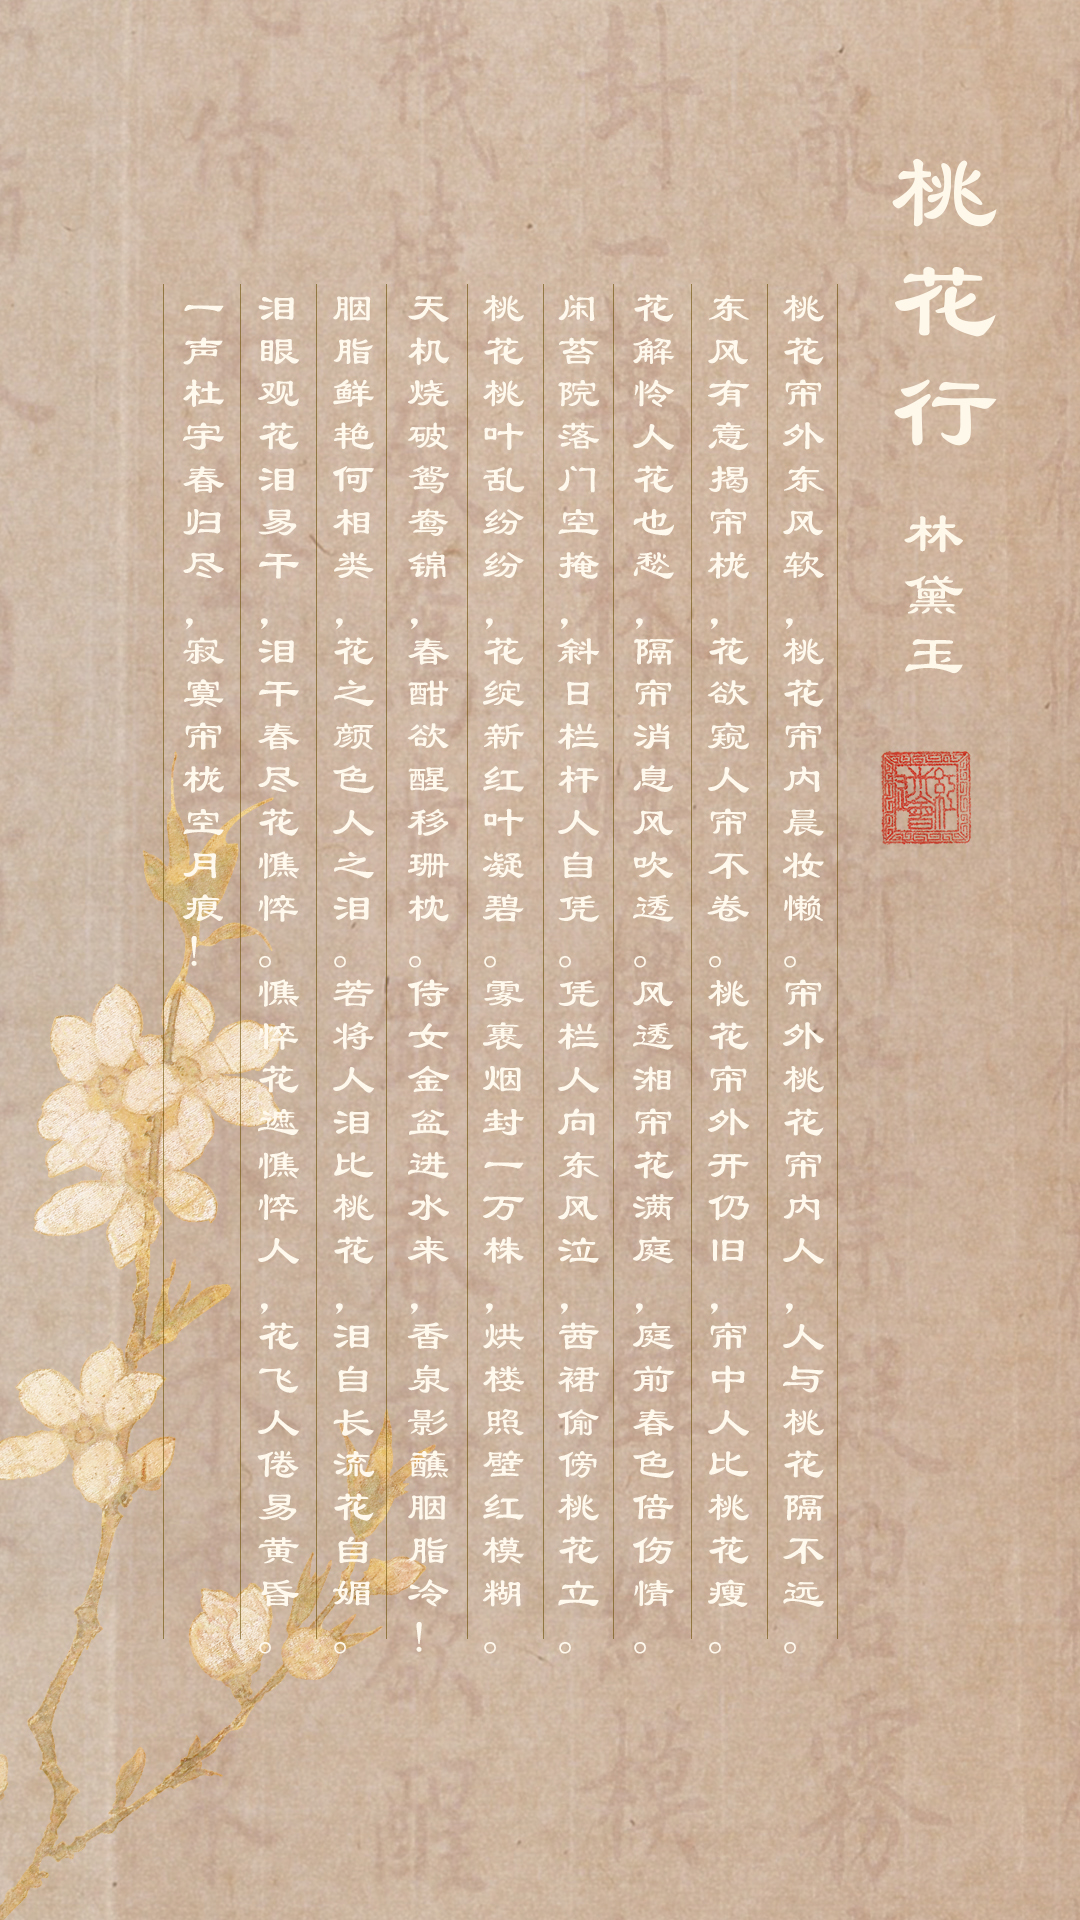 桃花行
林黛玉
桃花帘外东风软，桃花帘内晨妆懒。帘外桃花帘内人，人与桃花隔不远。
东风有意揭帘栊，花欲窥人帘不卷。桃花帘外开仍旧，帘中人比桃花瘦。
花解怜人花也愁，隔帘消息风吹透。风透湘帘花满庭，庭前春色倍伤情。
闲苔院落门空掩，斜日栏杆人自凭。凭栏人向东风泣，茜裙偷傍桃花立。
桃花桃叶乱纷纷，花绽新红叶凝碧。雾裹烟封一万株，烘楼照壁红模糊。
天机烧破鸳鸯锦，春酣欲醒移珊枕。侍女金盆进水来，香泉影蘸胭脂冷！
胭脂鲜艳何相类，花之颜色人之泪。若将人泪比桃花，泪自长流花自媚。
泪眼观花泪易干，泪干春尽花憔悴。憔悴花遮憔悴人，花飞人倦易黄昏。
一声杜宇春归尽，寂寞帘栊空月痕！